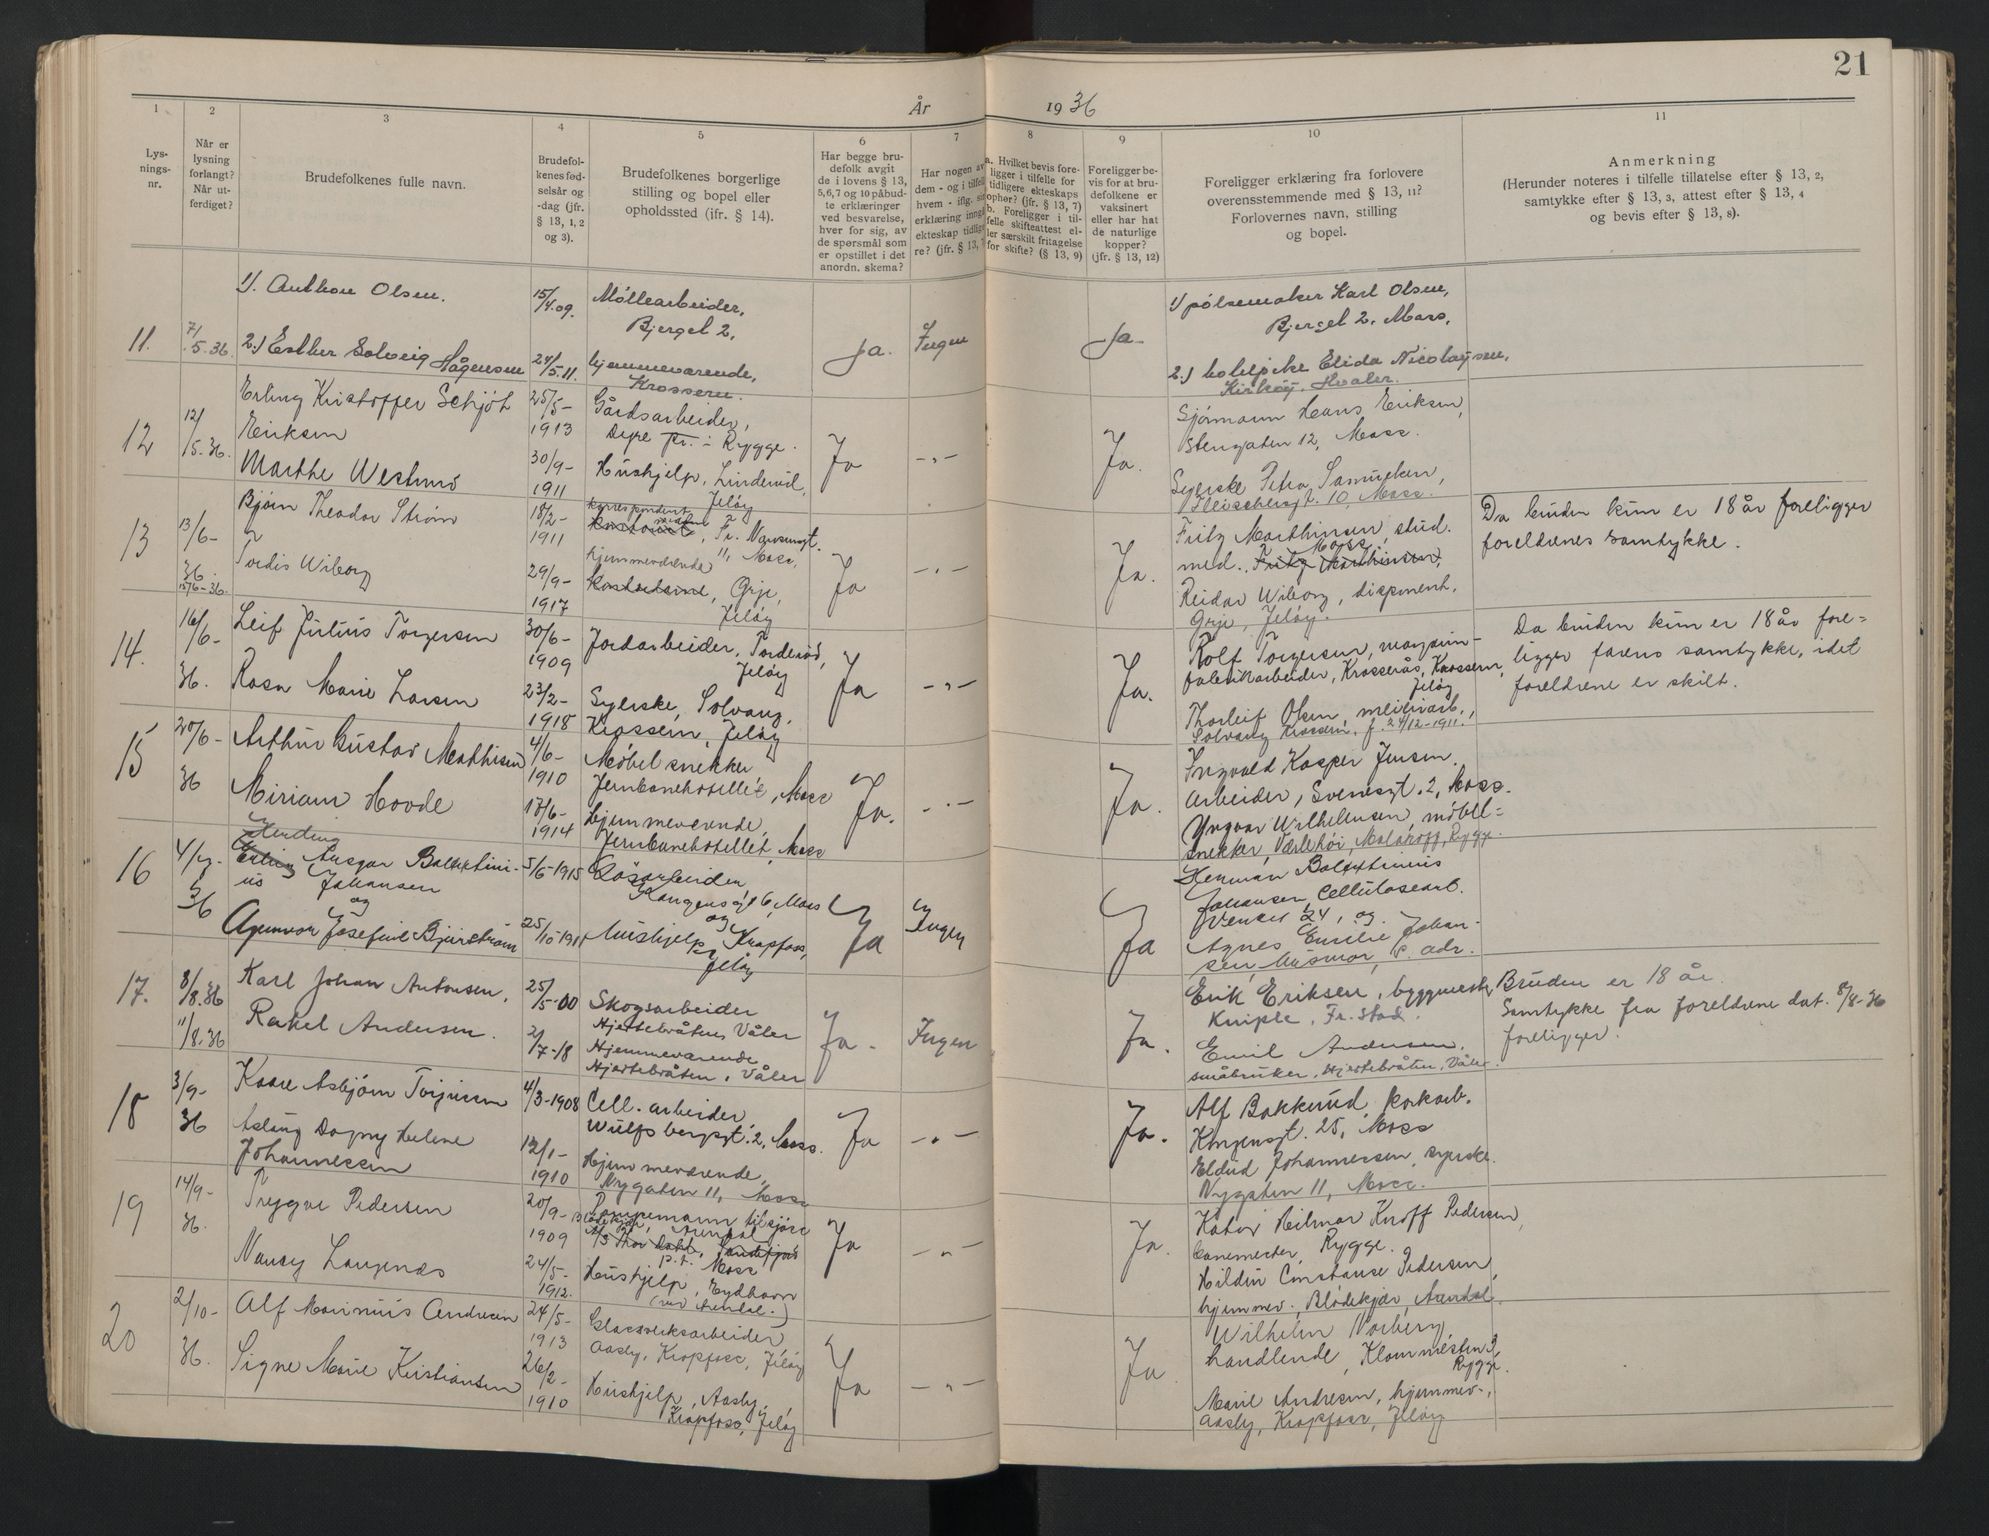 21
År 1936
1
2
3
4
5
6
7
8
9
10
11
Lys-
nings-
nr.
Når er
lysning
forlangt?
Når ut-
ferdiget?
Brudefolkenes fulle navn.
Brudefol-
kenes fød-
selsår og
-dag (jfr.
§ 13, 1, 2
og 3).
Brudefolkenes borgerlige
stilling og bopel eller
opholdssted (ifr. § 14).
Har begge bru-
defolk avgit
de i lovens § 13,
5,6,7 og 10 påbud-
te erklæringer
ved besvarelse,
hver for sig, av
de spørsmål som
er opstillet i det
anordn. skema?
Har nogen av
dem - og i tilfelle
hvem - iflg. sin
erklæring inngå
ekteskap tidlige-
re? (jfr. § 13,
a. Hvilket bevis fore-
ligger i tilfelle for
tidligere ekteskaps
ophør? (jfr. § 13, 7)
b. Foreligger i til-
felle skifteattest el-
ler særskilt fritagelse
for skifte? (§ 13, 9)
Foreligger be-
vis for at bru-
defolkene er
vaksinert
eller har hat
de naturlige
kopper?
(jfr. § 13, 12)
Foreligger erklæring fra forlovere
overensstemmende med § 13, 11?
Forlovernes navn, stilling
og bopel.
Anmerkning
(Herunder noteres i tilfelle tillatelse efter § 13, 2,
samtykke efter § 13, 3, attest efter § 13, 4
og bevis efter § 13, 8).
11.
7/5.36.
1). Anthon Olsen.
15/4.09.
Møllearbeider,
Bjerget 2,
2.) Esther Solveig Hågensen
24/5.11.
hjemmeværende,
Krossern.
Ja.
Ingen
Ja
1) pølsemaker Karl Olsen,
Bjerget 2. Moss,
2.) Elida Nicolaysen,
Kirkøy, Hvaler.
12
12/5.36.
Erling Kristoffer Schjöt
Eriksen
25/5-
1913
Gårdsarbeider,
Dyre pr. i Rygge.
Marthe Westmo
30/9-
1911
Hushjelp, Linderud,
Jeløy
Ja
-„-
Ja.
Sjømann Hans Eriksen,
Stengaten 12, Moss.
Syerske Petra Samuelsen,
10, Moss.
13
13/6-
36.
15/6-36.
Bjørn Theodor Strøm
18/2-
1911
korrespondent
11, Moss,
Tordis Wiborg
29/9-
1917
hjemmeværende
, Grje,
Jeløy
Ja
-„-
Ja.
Fritz Marthinsen, stud.
med. Moss
Fritz Marthinsen,
Reidar Wiborg, disponent,
Grje, Jeløy.
Da bruden kun er 18 år foreligger
foreldrenes samtykke.
14.
16/6-
36.
Leif Julius Torgersen
30/6-
1909
Jordarbeider, Torderød,
Jeløy
Rosa Marie Larsen
23/2-
1918
Syerske, Solvang,
Krossern, Jeløy
Ja
-„-
Ja.
Rolf Torgersen, margarin-
fabrikkarbeider, Krosserås, Krossern,
Jeløy
Thorleif Olsen, meieriarb.,
Solvang Krossern, f. 24/12-1911.
Da bruden kun er 18 år fore=
ligger farens samtykke, idet
foreldrene er skilt.
15
20/6-
36
Arthur Gustav Mathisen
4/6-
1910
Møbelsnekker
Jernbanehotellet, Moss
Miriam Hovde
17/6-
1914
hjemmeværende,
Jernbanehotellet, Moss
Ja.
-„-
Ja.
Ingvald Kasper Jensen,
Arbeider, Svenesgt. 2, Moss.
Yngvar Wilhelmsen, møbel=
snekker, Værlehøi, Malakoff, Rygge.
16
36
Ansgar
Johansen
og
5/6-1915
6, Moss
og
Agunvor Josefine Bjurstrøm
25/10-1911
Hushjelp, Krapfoss,
Jeløy
Ja
Ingen
Ja
Herman
Johansen, Cellulosearb.
24, og
Agnes Emilie Johan-
sen, husmor, s. adr.
17.
8/8.36
11/8.36
Karl Johan Antonsen,
25/5-00
Skogsarbeider
Hjertebråten, Våler
Rakel Andersen.
2/7-18
Hjemmeværende
Hjertebråten, Våler
Ja.
Ingen
Ja.
Erik Eriksen, byggmester
Kniple, Fr.stad.
Emil Andersen,
småbruker, Hjertebråten, Våler.
Bruden er 18 år.
Samtykke fra foreldrene dat. 8/8-36
foreligger.
18
3/9-
36
Kaare Asbjørn Torjussen
4/3-1908
Cell. arbeider
Wulfsbergsgt. 2, Moss.
Aslaug Dagny Helene
Johannessen
12/1-
1910
Hjemmeværende,
Nygaten 11, Moss
Ja
-„-
Ja.
Alf Bakkerud, korkarb.
Kongensgt. 25, Moss
Eldud Johannessen, syerske.
Nygaten 11, Moss.
19
14/9-
36.
Trygve Pedersen
20/9-
1909
Pumpemann til sjøss
Arendal
p.t. Moss
Nancy Langenæs
24/5-
1912.
Hushjelp, Eydhavn
(ved Arendal.)
Ja
-„-
Ja.
Kator Hilmar Knoff Pedersen,
banemester, Rygge.
Hildur Constanse Pedersen,
hjemmev., Blødekjær, Arendal.
20
2/10-
36.
Alf Marinius Andresen
24/5-
1913
Glassverksarbeider
Aasly, Krapfoss, Jeløy
Signe Marie Kristiansen
26/2-
1910
Hushjelp, Aasly,
Krapfoss, Jeløy
Ja
-„-
Ja
Wilhelm Norberg
handlende, Klommesten,
Rygge.
Marie Andresen, hjemmev.,
Aasly, Krapfoss, Jeløy